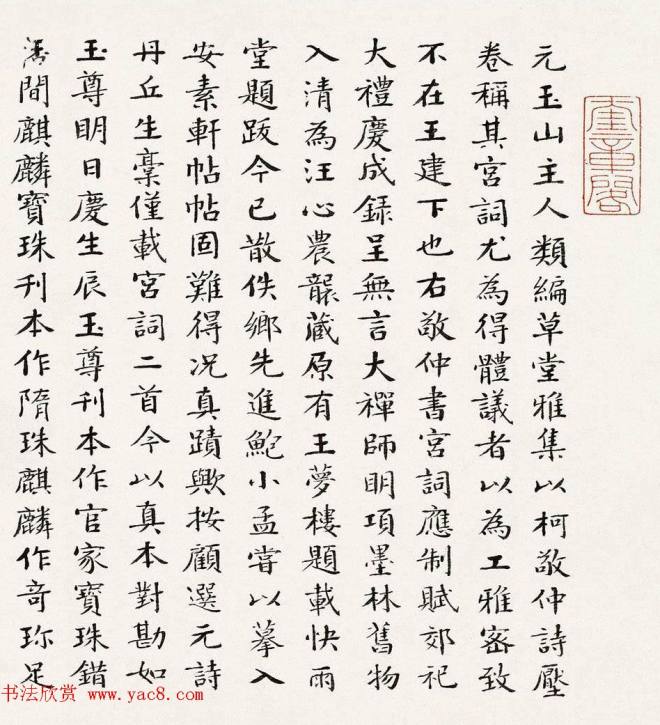 元玉山主人類編草堂雅集以柯敬仲詩壓
卷稱其宮詞尤為得體議者以為工雅密致
不在王建下也右敬仲書宮詞應制賦郊祀
大禮慶成錄呈無言大禪師明項墨林舊物
入清為汪心農龔藏原有王夢樓題載快雨
堂題跋今已散佚鄉先進鮑小孟嘗以摹入
安素軒帖帖固難得況真蹟歟按顧選元詩
丹丘生稾僅載宮詞二首今以真本對勘如
玉尊明日慶生辰玉尊刊本作官家寶珠錯
落間麒麟寶珠刊本作隋珠麒麟作奇珎足
书法欣赏 www.yac8.com